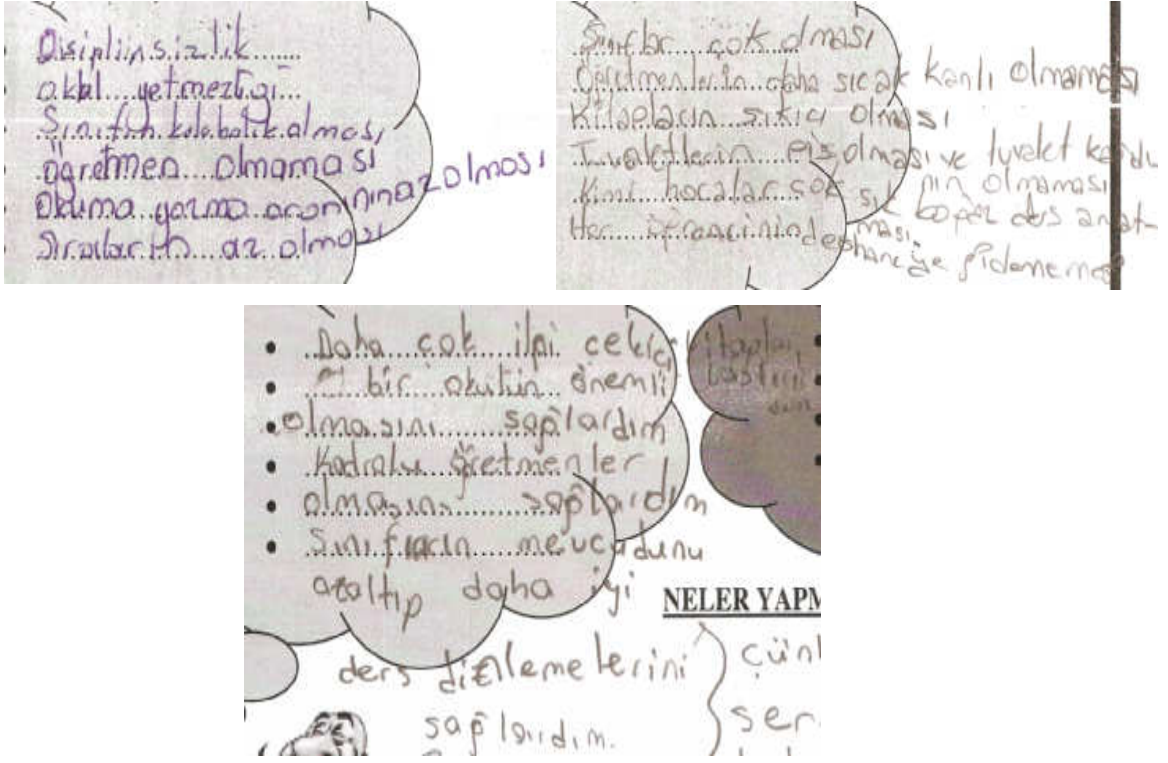 Disipliinsizlik
okul yetmezliği
Sınıfın kalabalık olması
öğretmen olmaması
Okuma yazma oranınınaz olması
Sıraların az olması
Sınıflar çok olması
Öğretmenlerin daha sıcak kanlı olmaması
Kitapların sıkıcı olması
Tuvaletlerin pis olması ve tuvalet
nın olmaması
Kimi hocalar çok sık boğaz ders anlat-
ması.
Her öğrencinin dershaneye gidememesi
Daha çok ilgi çekici kitaplar
bir okulun önemli
olmasını sağlardım
Kadrolu öğretmenler
olmasını sağlardım
Sınıfların mevcudunu
azaltıp daha iyi
NELER YAPM
ders dinlemelerini
çün
sağlardım.
ser